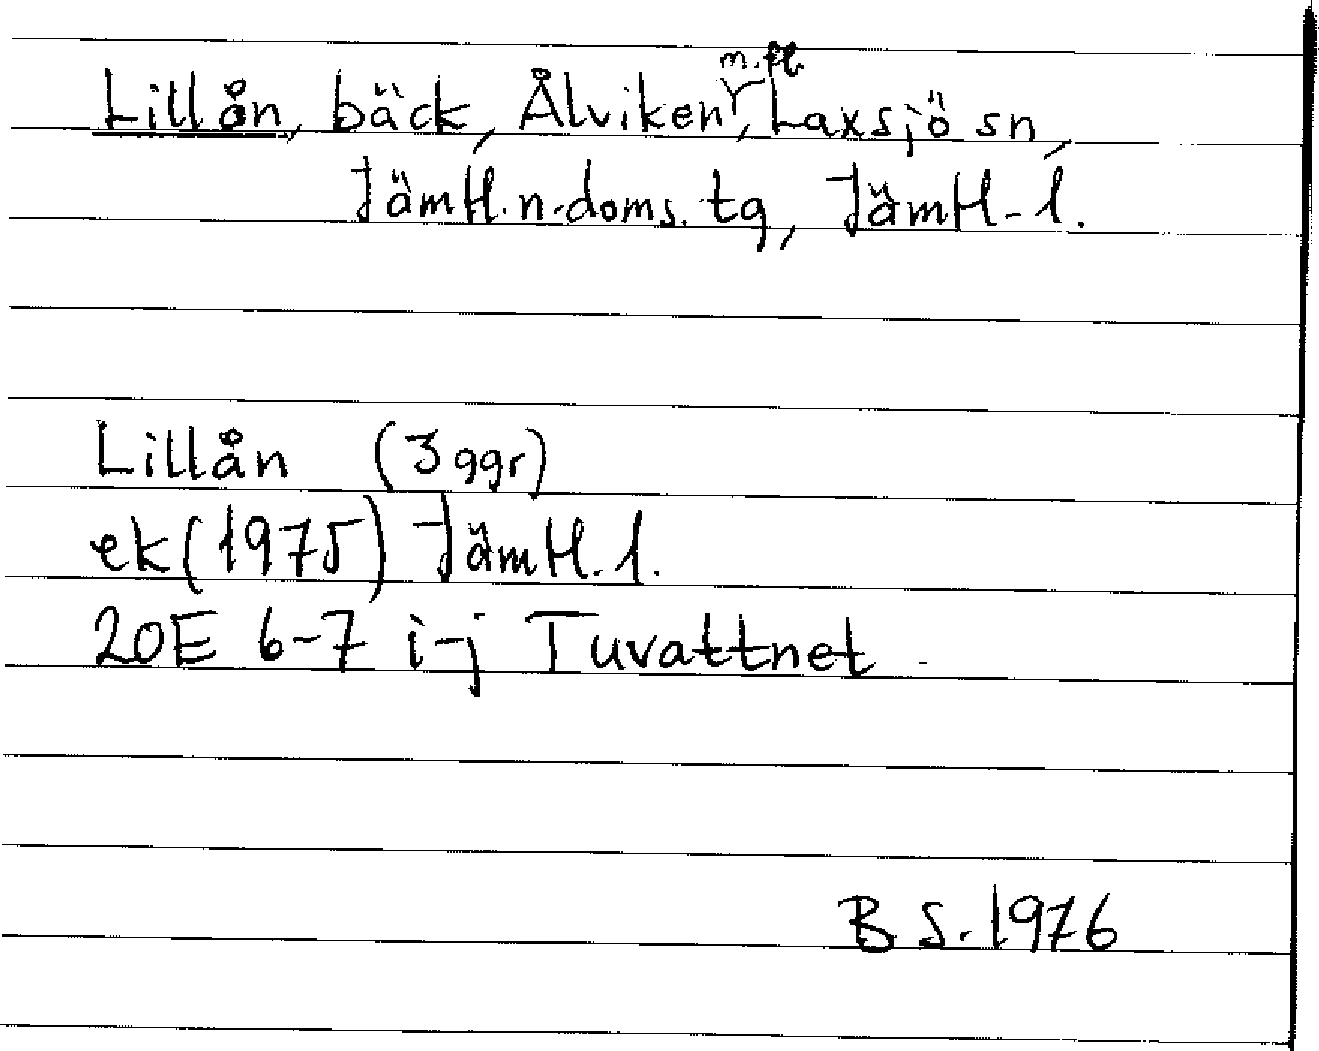 Lillån, bäck, Ålviken m.fl., Laxsjö sn,
Jämtl.n.doms.tg, Jämtl-l.
Lillån (3 ggr)
ek(1975) Jämtl.l.
20E 6-7 i-j Tuvattnet.
B S. 1976